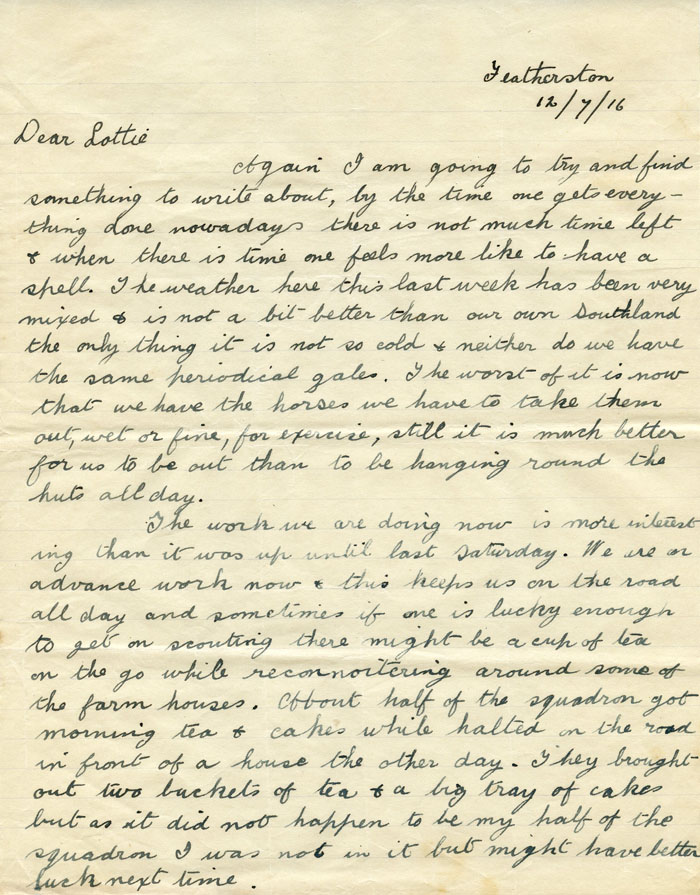 Featherston
12/7/16
Dear Lottie
Again I am going to try and find
something to write about, by the time one gets every-
thing done nowadays there is not much time left
& when there is time one feels more like to have a
spell. The weather here this last week has been very
mixed & is not a bit better than our own Southland
the only thing it is not so cold & neither do we have
the same periodical gales. The worst of it is now
that we have the horses we have to take them
out, wet or fine, for exercise, still it is much better
for us to be out than to be hanging round the
huts all day.
The work we are doing now is more interest
ing than it was up until last Saturday. We are on
advance work now & this keeps us on the road
all day and sometimes if one is lucky enough
to get on scouting there might be a cup of tea
on the go while reconnoitering around some of
the farm houses. About half of the squadron got
morning tea & cakes while halted on the road
in front of a house the other day. They brought
out two buckets of tea & a big tray of cakes
but as it did not happen to be my half of the
squadron I was not in it but might have better
luck next time.